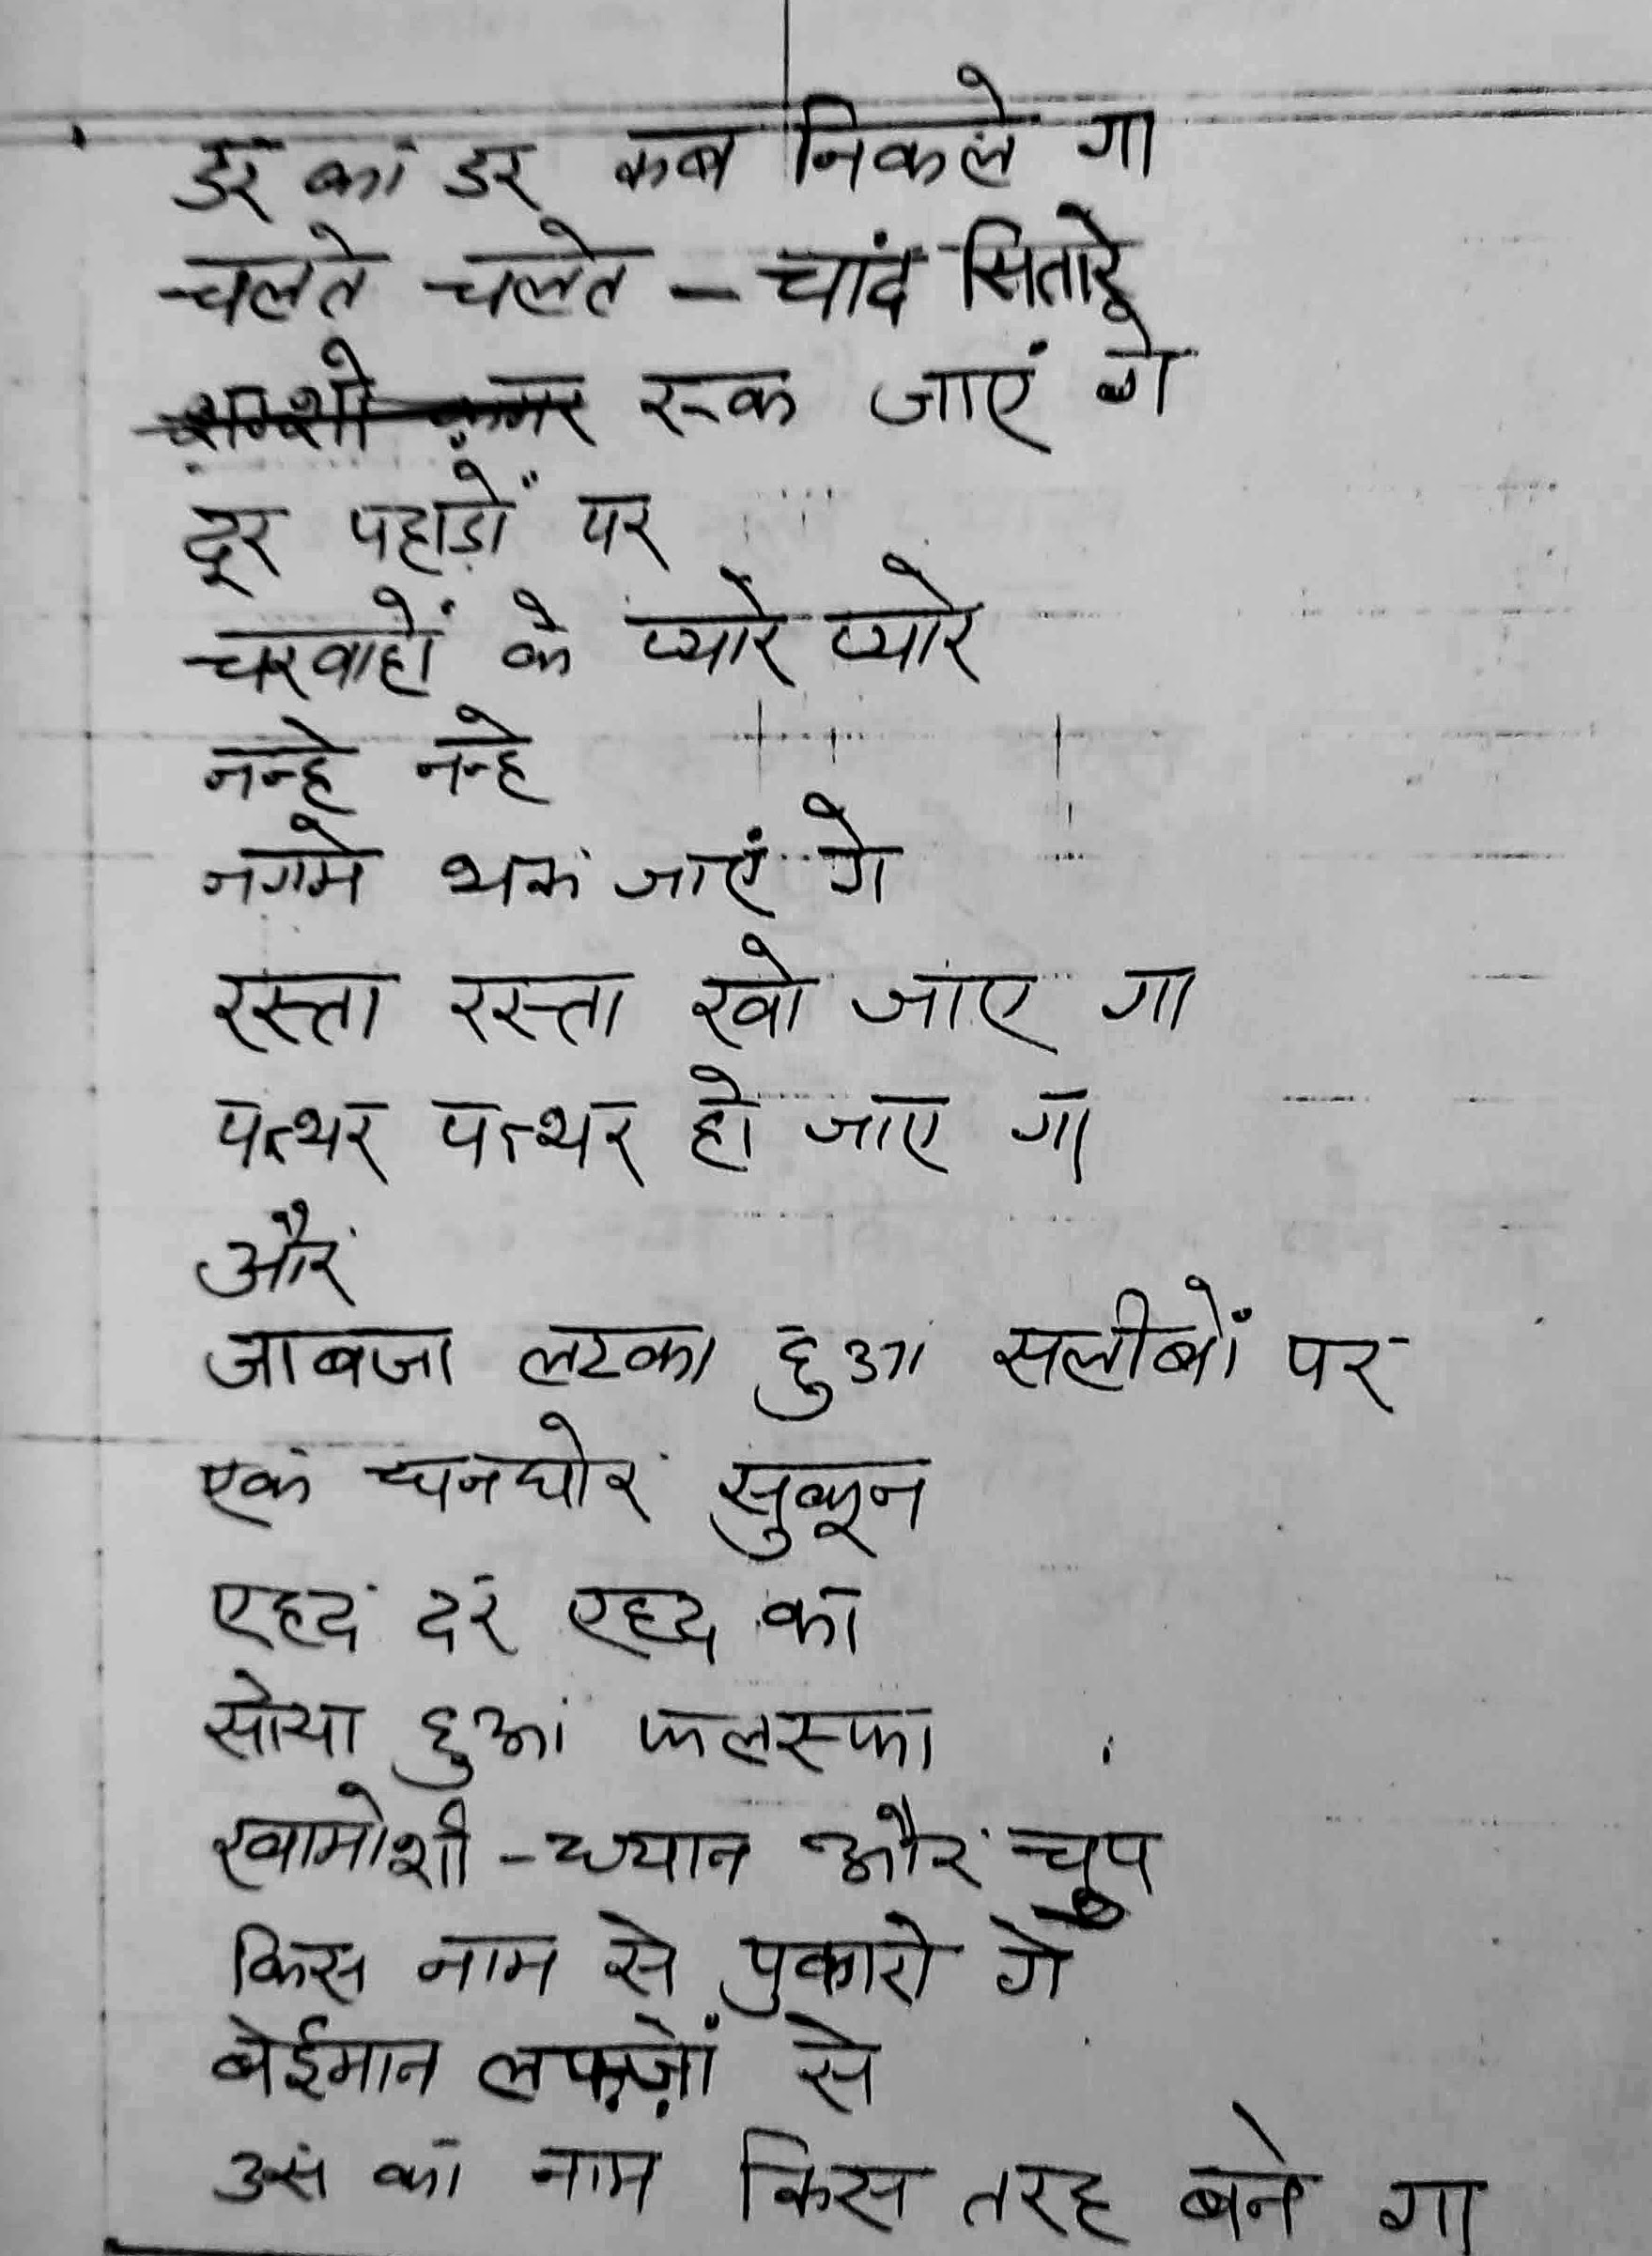 डर का डर कब निकले गा
चलते चलते – चांद सितारे
रुक जाएं गे
दूर पहाड़ों पर
चरवाहों के प्यारे प्यारे
नन्हे नन्हे
नग़मे थक जाएं गे
रस्ता रस्ता खो जाए गा
पत्थर पत्थर हो जाए गा
और
जाबजा लटका हुआ सलीबों पर
एक घनघोर सुकून
एहद दर एहद का
सोया हुआ फलस्फा
खामोशी – ध्यान और चुप
किस नाम से पुकारो गे
बेईमान लफ़ज़ों से
उस का नाम किस तरह बने गा